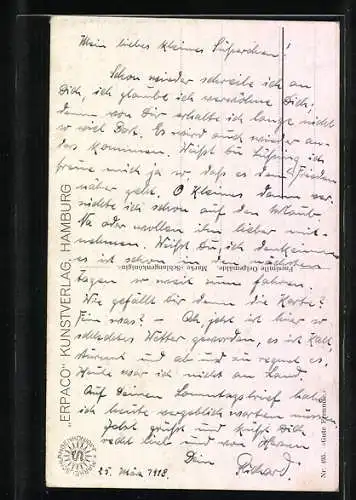 Mein liebes kleines Süßerchen!
Schon wieder schreibe ich an
Dich, ich glaube ich verwöhne Dich;
denn von Dir erhalte ich lange nicht
so viel Post. Es wird auch wieder an-
das kommen. Weißt du Süßing ich
freue mich ja so, daß es dem Frieden
näher geht. O Kleines dann ver-
zichte ich schon auf den Urlaub.
Na oder wollen ihn lieber mit-
nehmen. Weißt Du, ich denke
es ist schon in den nächsten
Tagen so weit zum fahren.
Wie gefällt dir denn die Karte?
Fein was? — Ach jetzt ist hier so
schlechtes Wetter geworden, es ist kalt,
stürmt und ab und zu regnet es.
Heute war ich nicht an Land.
Auf Deinen Sonntagsbrief habe
ich heute vergeblich warten müssen.
Jetzt grüßt und küßt Dich
recht lieb und von Herzen
Dein Richard.
25. März 1918.
„ERPACO" KUNSTVERLAG, HAMBURG
Marke „Schlangenkönigin"